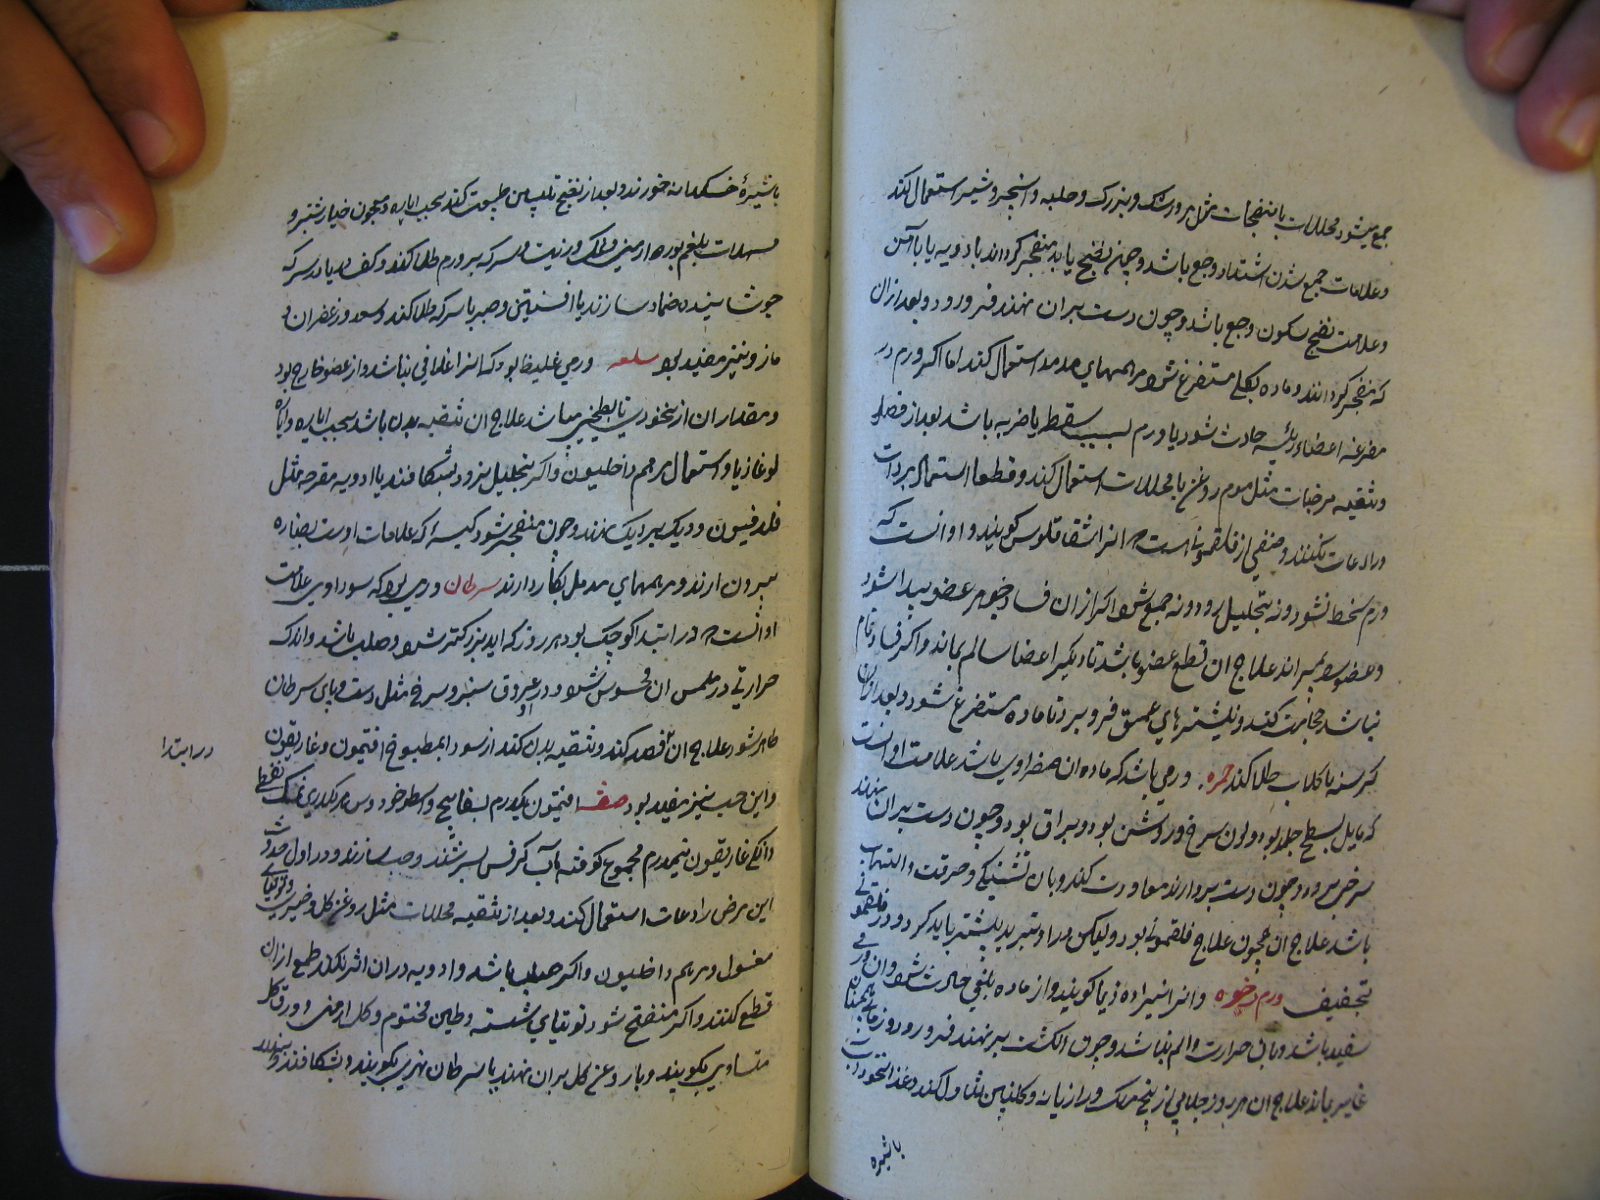 جمع میشود محللات با منضجات مثل مرورشک و بزرک و حلبه و انجیر و شیر استعمال کند
و علامات جمع شدن اشتداد وجع باشد و چون نضج یابد منفجر گردانند بادویه یا بآهن
و علامت نضج سکون وجع باشد و چون دست بران نهند فرو رود و بعد ازان
که منفجر گردانند و ماده بکلی مستفرغ شود مرهمهای مدمل استعمال کند اما اگر ورم در
مفرغه اعضاء رئیسه حادث شود یا ورم بسبب سقطه یا ضربه باشد بعد از فصد
و تنقیه مرخیات مثل موم روغن با محللات استعمال کند و قطعا استعمال مبردات
و رادعات نکنند و صنفی از فلغمونی است که انرا شقاقلوس گویند و او انست که
ورم منحط نشود و نه بتحلیل رود و نه جمع شود اگر ازان فساد جوهر عضو پیدا شود
و عضو را بمیراند علاج ان قطع عضو باشد تا دیگر اعضا سالم بماند و اگر فساد تمام
نباشد حجامت کند و نیشترهای عمیق فرو برد تا ماده مستفرغ شود و بعد ازان
کرسنه با گلاب طلا کند حمره ورمی باشد که ماده ان صفراوی باشد علامت او انست
که مایل بسطح جلد بود و لون سرخ و روشن بود و براق بود و چون دست بران نهند
سرخی برود و چون دست بردارند معاودت کند و بان تشنگی و حرقت و التهاب
باشد علاج ان همچون علاج فلغمونی بود و لیکن درو تبرید بیشتر باید کرد و در فلغمونی
تجفیف ورم رخوه و انرا نیز اذیما گویند و از ماده بلغمی حادث شود وان ورمی
سفید باشد و با ان حرارت و الم نباشد و چون انگشت بر نهند فرو رود و زمانی همچنان
غایر بماند علاج ان هر روز جلابی از بیخ مهک و رازیانه و گلنگبین تناول کند و غذا نخوداب
با شیره
با شیرهٔ خسکدانه خورند و بعد از نضج تلیین طبیعت کند بحب ایاره و معجون خیارشنبر و
مسهلات بلغم بوره ارمنی و نمک و زیت و سرکه بر ورم طلا کند و کف دریا در سرکه
جوشانیده ضماد سازند یا افسنتین و صبر با سرکه طلا کند و سعد و زعفران و
مازو نیز مفید بود سلعه ورمی غلیظ بود که انرا غلافی باشد و از عضو خارج بود
و مقدار ان از نخودی تا بطیخی میباشد علاج ان تنقیه بدن باشد بحب ایاره و ایاره
لوغاذیا و استعمال مرهم داخلیون و اگر بتحلیل نرود بشکافند یا ادویه مقرحه مثل
فلدفیون و دیک بردیک نهند و چون منفجر شود کیسه را که علامات اوست بصناره
بیرون ارند و مرهمهای مدمل بکار دارند سرطان ورمی بود که سوداوی علامت
او انست که در ابتدا کوچک بود هر روز که اید بزرگتر شود و صلب باشد و اندک
حرارتی در ملمس ان محسوس شود و در او عروق سبز و سرخ مثل دست و پای سرطان
ظاهر شود علاج ان فصد کند و تنقیه بدن کند از سودا بمطبوخ افتیمون و غاریقون
در ابتدا
و این حب نیز مفید بود صفت افتیمون یکدرم بسفایج و اسطوخودوس هر یکی درمی نمک نفطی
دانکی غاریقون نیمدرم مجموع کوفته بآب کرفس بسرشند و حب سازند و در اول حدوث
این مرض رادعات استعمال کند و بعد از تنقیه محللات مثل روغن گل و خیری و توتیای
مغسول و مرهم داخلیون و اگر صلب باشد و ادویه دران اثر نکند طمع ازان
قطع کنند و اگر منفتح شود توتیای شسته و طین مختوم و گل ارمنی و ورق گل
متساوی بکوبند و با روغن گل بران نهند یا سرطان نهری بکوبند و بشکافند و ببندند